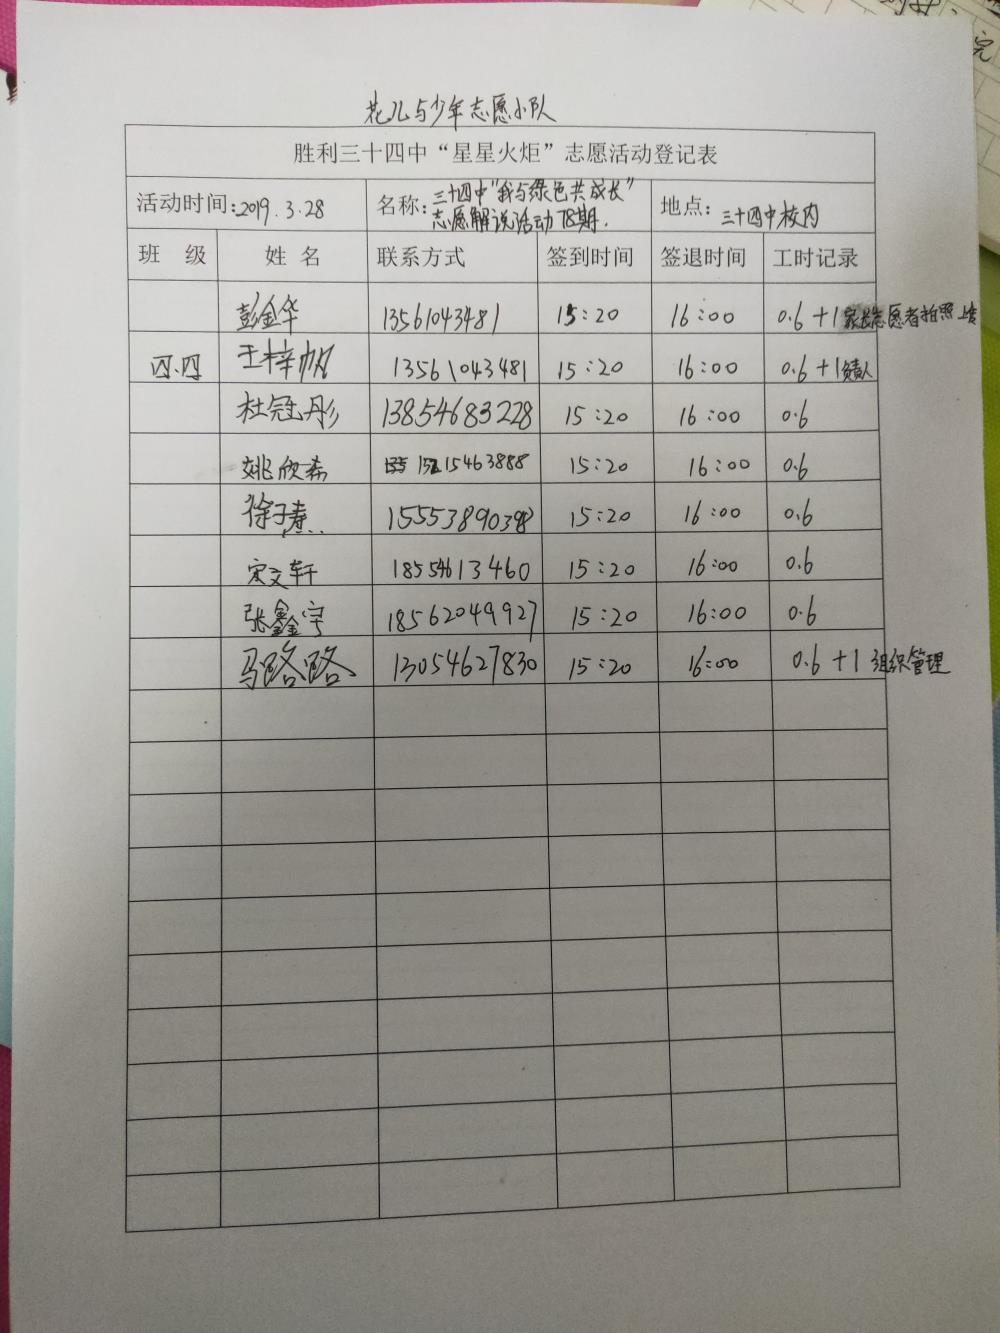 花儿与少年志愿小队
胜利三十四中“星星火炬”志愿活动登记表
活动时间:2019.3.28 名称:三十四中“我与绿色共成长”志愿解说活动78期. 地点:三十四中校内
班 级 姓 名 联系方式 签到时间 签退时间 工时记录
彭金华 13561043481 15:20 16:00 0.6+1家长志愿者拍照上传
四.四 王梓帆 13561043481 15:20 16:00 0.6+1负责人
杜冠彤 13854683228 15:20 16:00 0.6
姚欣希 15215463888 15:20 16:00 0.6
徐子焘 15553890398 15:20 16:00 0.6
宋文轩 18554613460 15:20 16:00 0.6
张鑫宇 18562049927 15:20 16:00 0.6
马路路 13054627830 15:20 16:00 0.6+1组织管理
完